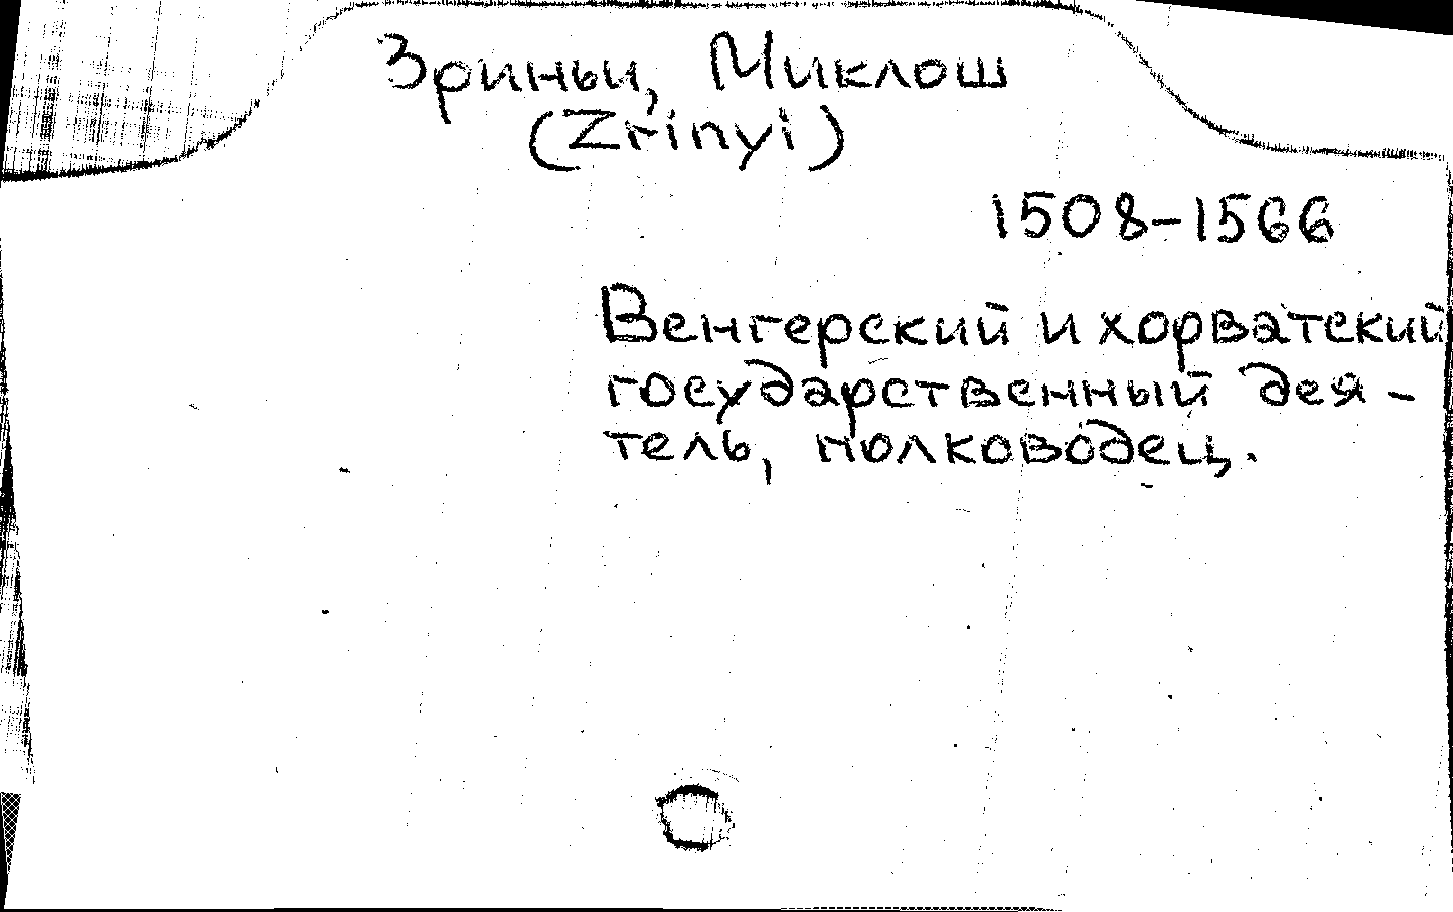 Зриньи, Миклош
(Zrinyi)
1508-1566
Венгерский и хорватский
государственный дея-
тель, полководец.